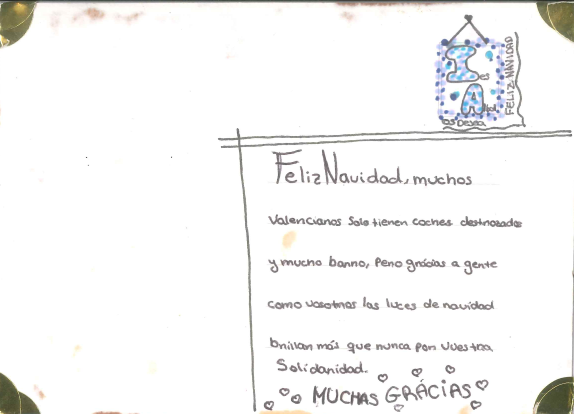 I
es
A
lal
os Desea
FELIZ NAVIDAD
Feliz Navidad, muchos
Valencianos solo tienen coches destrozados
y mucho barro, pero grácias a gente
como vosotros las luces de navidad
brillan más que nunca por vuestra
Solidaridad.
MUCHAS GRÁCIAS